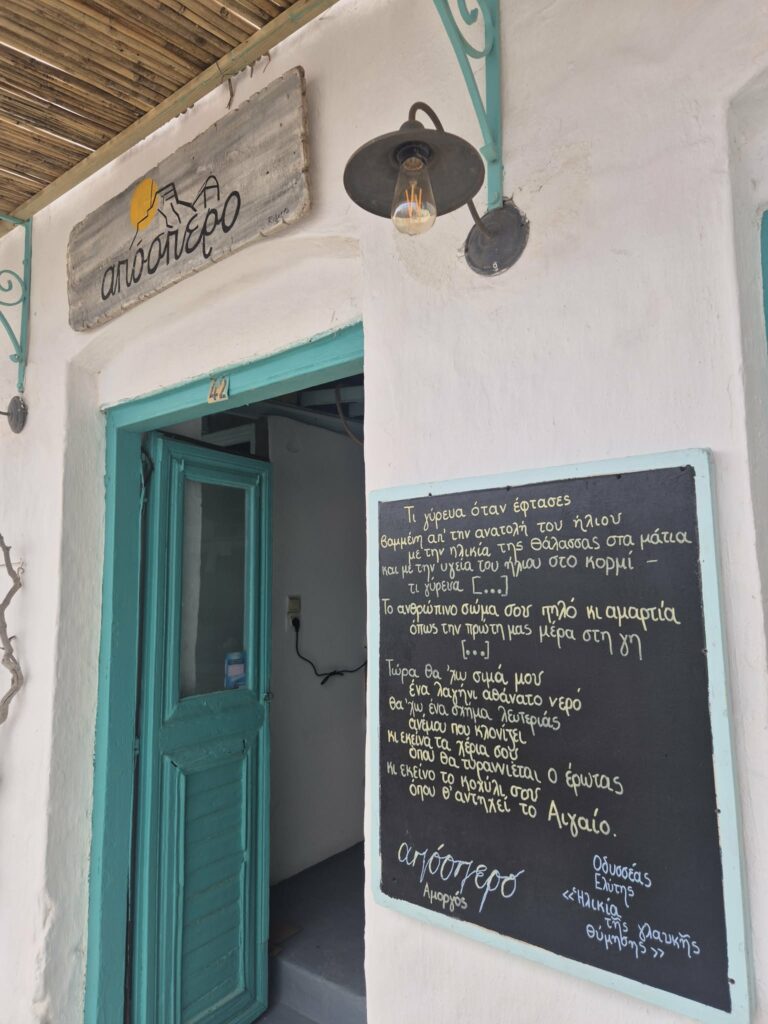 απόσπερο
42
Τι γύρευα όταν έφτασες
βαμμένη απ' την ανατολή του ήλιου
με την ηλικία της θάλασσας στα μάτια
και με την υγεία του ήλιου στο κορμί –
τι γύρευα [...]
Το ανθρώπινο σώμα σου πηλό κι αμαρτία
όπως την πρώτη μας μέρα στη γη
[...]
Τώρα θα 'χω σιμά μου
ένα λαγήνι αθάνατο νερό
θα 'χω ένα σχήμα λευτεριάς
ανέμου που κλονίζει
κι εκείνα τα χέρια σου
όπου θα τυραννιέται ο έρωτας
κι εκείνο το κοχύλι σου
όπου θ' αντηχεί το Αιγαίο.
απόσπερο
Αμοργός
Οδυσσέας
Ελύτης
«Ἡλικία
τῆς γλαυκῆς
θύμησης»